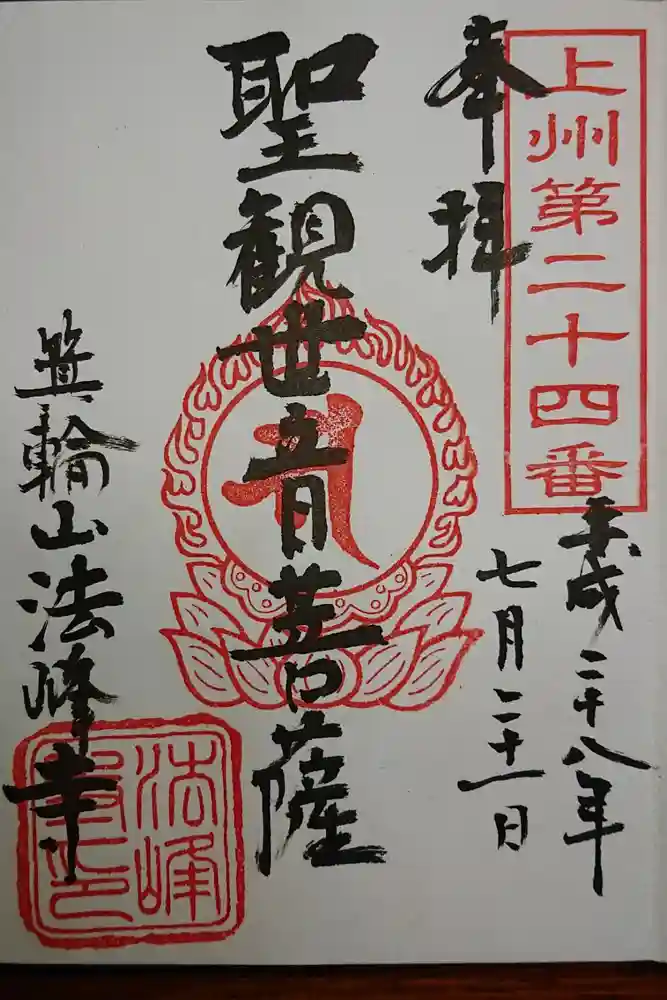 上州第二十四番
奉拝
平成二十八年
七月二十一日
聖観世音菩薩
箕輪山法峰寺
法峰
寺印